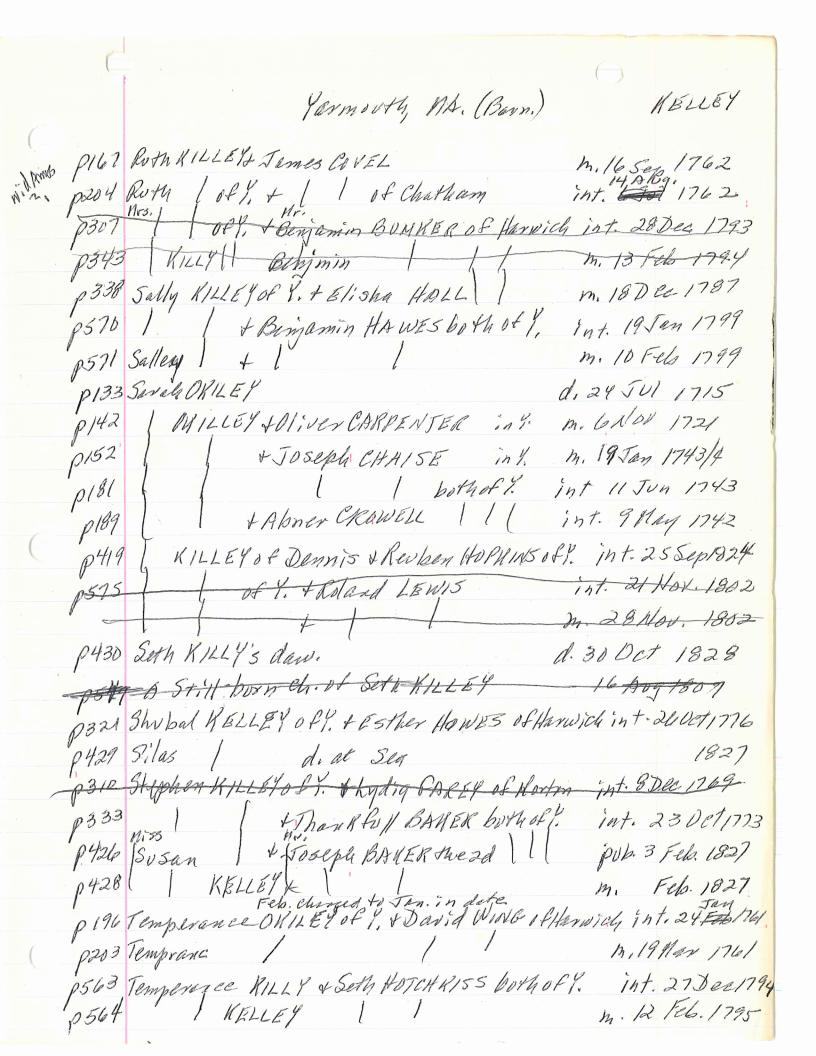 Yarmouth, MA. (Barn.) KELLEY
p167 Ruth KILLEY & James COVEL m. 16 Sep 1762
p204 Ruth | of Y. & | | of Chatham int. 14 Aug. 1762
p307 Mrs. | | of Y. & Mr. Benjamin BUMKER of Harwich int. 28 Dec 1793
p343 | KILLY | | Benjmin | | | m. 13 Feb 1794
p338 Sally KILLEY of Y. & Elisha HALL | | m. 18 Dec 1787
p570 | | & Benjamin HAWES both of Y. int. 19 Jan 1799
p571 Salley | & | | m. 10 Feb 1799
p133 Sarah OKILEY d. 24 JUl 1715
p142 | OKILLEY & Oliver CARPENTER in Y. m. 6 Nov 1721
p152 | | & Joseph CHAISE in Y. m. 19 Jan 1743/4
p181 | | | | both of Y. int 11 Jun 1743
p189 | | & Abner CROWELL | | | int. 9 May 1742
p419 | KILLEY of Dennis & Reuben HOPKINS of Y. int. 25 Sep 1824
p575 | | of Y. & Roland LEWIS int. 21 Nov. 1802
| | & | | m. 28 Nov. 1802
p430 Seth KILLY's daw. d. 30 Oct 1828
A Still born ch. of Seth KILLEY 16 Aug 1807
p321 Shubal KELLEY of Y. & Esther HOWES of Harwich int. 26 Oct 1776
p429 Silas | d. at Sea 1827
p310 Stephen KILLEY of Y. & Lydia CAREY of Norton int. 8 Dec 1769
p333 | | & Thankfull BAKER both of Y. int. 23 Oct 1773
p426 Miss Susan | & Mr. Joseph BAKER the 2d | | | pub. 3 Feb. 1827
p428 | | KELLEY & | | m. Feb. 1827
Feb. changed to Jan. in date
p196 Temperance OKILEY of Y. & David WING of Harwich int. 24 Jan 1761
p203 Tempranc | | | m. 19 Mar 1761
p563 Temperance KILLY & Seth HOTCHKISS both of Y. int. 27 Dec 1794
p564 | KELLEY | | m. 12 Feb. 1795